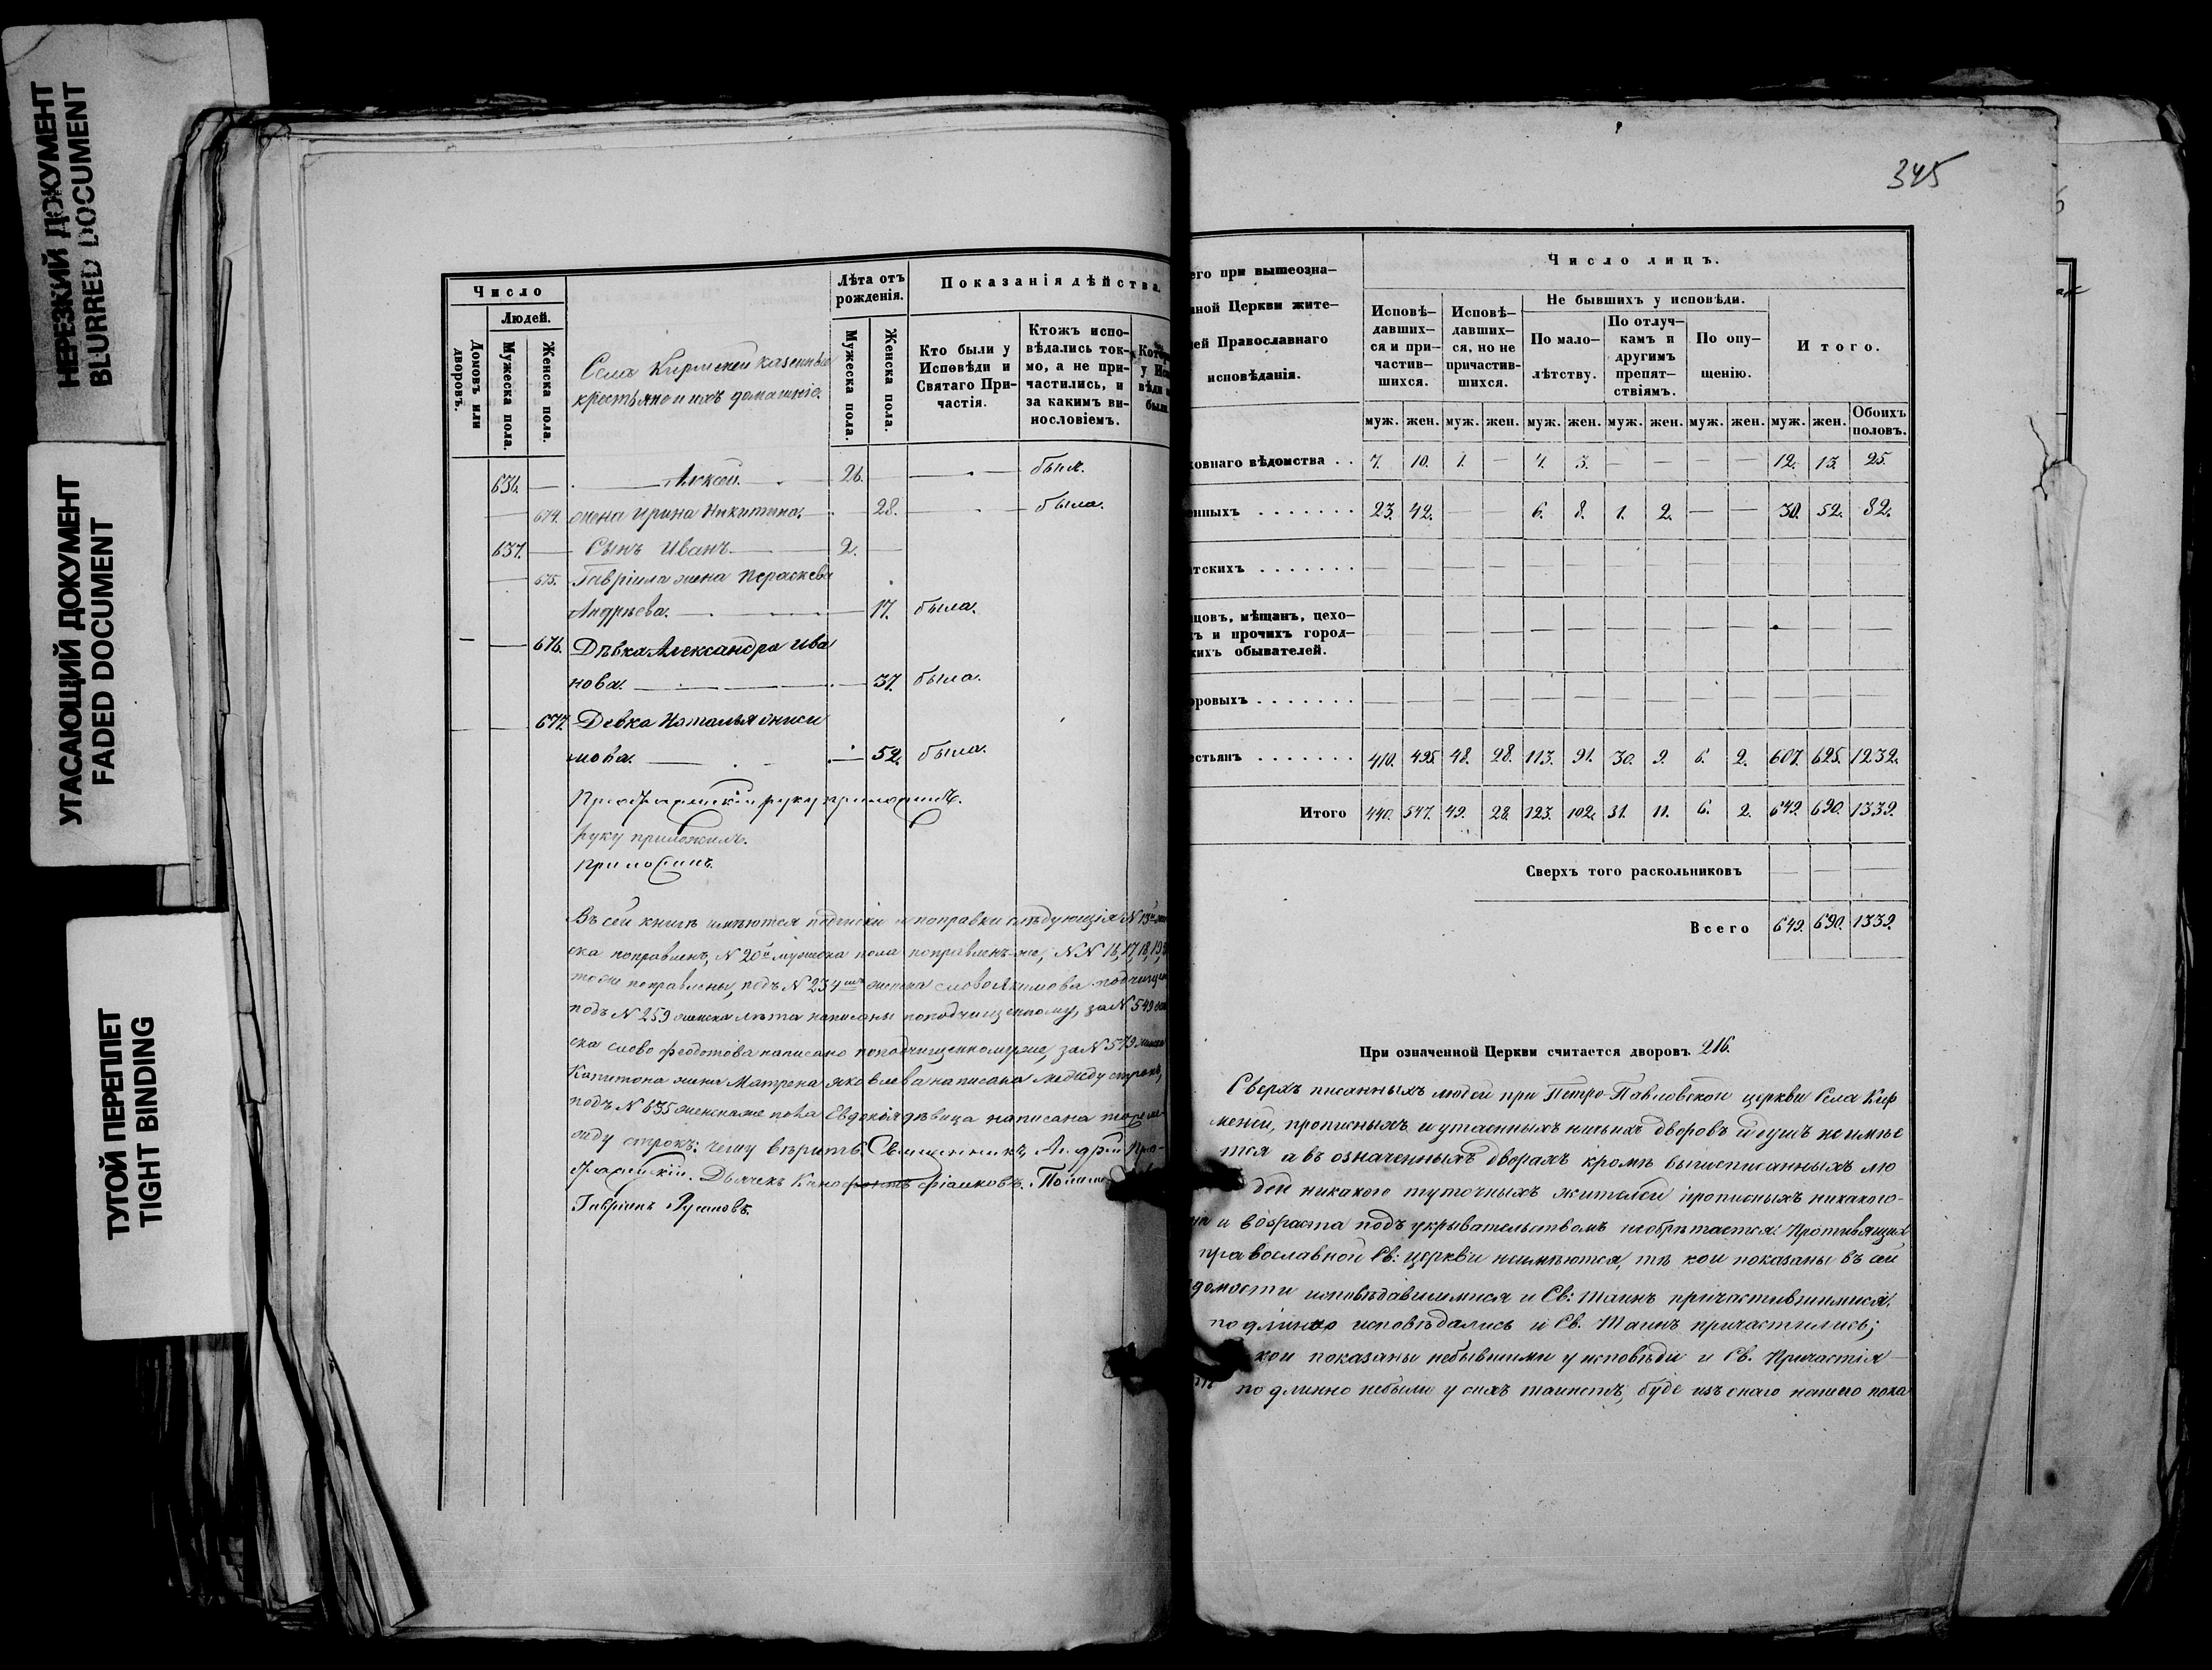 НЕРЕЗКИЙ ДОКУМЕНТ
BLURRED DOCUMENT
УГАСАЮЩИЙ ДОКУМЕНТ
FADED DOCUMENT
ТУГОЙ ПЕРЕПЛЕТ
TIGHT BINDING
Число
Людей.
Домовъ или дворовъ.
Мужеска пола.
Женска пола.
Села Кирменей казенные
крестьяне и ихъ домашніе.
Лѣта отъ рожденія.
Мужеска пола.
Женска пола.
Показанія дѣйства.
Кто были у Исповѣди и Святаго Причастія.
Ктожъ исповѣдались токмо, а не причастились, и за какимъ винословіемъ.
636. Алексѣй. 26. былъ.
674. жена Ирина Никитина. 28. была.
637. Сынъ Иванъ 2.
675. Гавріила жена Пераскева
Андреева. 17. была.
676. Дѣвка Александра Ива
нова. 37. была.
677. Девка Наталья Ониси
мова. 52. была.
руку приложилъ.
руку приложилъ.
приложилъ.
Въ сей книгѣ имѣются подчистки и поправки слѣдующія: N 13й
ска поправленъ, N 20й мужеска пола поправленъ же, NN 16, 17, 18, 19,
тоже поправлены, подъ N 234 женска слово Якимова подчищено
подъ N 259 женска лѣта написаны поподчищенному, за N 549
ска слово Феодотова написано поподчищенному же, за N 579
Капитона жена Матрена Яковлева написана между строкъ,
подъ N 635 женска же пола Евдокія дѣвица написана тоже ме-
жду строкъ: чему вѣрить. Священникъ Андрей
Дьячекъ
Гавріилъ Русиновъ.
345
его при вышеозна-
нной Церкви жите-
лей Православнаго
исповѣданія.
Число лицъ.
Исповѣдавшихся и причастившихся.
Исповѣдавшихся, но не причастившихся.
Не бывшихъ у исповѣди.
По малолѣтству.
По отлучкамъ и другимъ препятствіямъ.
По опущенію.
Итого.
муж. жен. муж. жен. муж. жен. муж. жен. муж. жен. муж. жен. Обоихъ половъ.
ховнаго вѣдомства . . 7. 10. 1. — 4. 3. — — — — 12. 13. 25.
енныхъ . . . . . . . 23. 42. — — 6. 8. 1. 2. — — 30. 52. 82.
тскихъ . . . . . . . — — — — — — — — — — — — —
цовъ, мѣщанъ, цехо-
хъ и прочихъ город-
кихъ обывателей. — — — — — — — — — — — — —
оровыхъ . . . . . . . — — — — — — — — — — — — —
естьянъ . . . . . . . 410. 495. 48. 28. 113. 91. 30. 9. 6. 2. 607. 625. 1232.
Итого 440. 547. 49. 28. 123. 102. 31. 11. 6. 2. 649. 690. 1339.
Сверхъ того раскольниковъ — — —
Всего 649. 690. 1339.
При означенной Церкви считается дворовъ 216.
Сверхъ писанныхъ людей при Петро-Павловской церкви Села Кир
меней, прописныхъ и утаенныхъ ничьихъ дворовъ и душъ не имѣе
тся а въ означенныхъ дворахъ кромѣ вышеписанныхъ лю
дей никакого туточныхъ жителей прописныхъ никакого-
и возраста подъ укрывательствомъ необрѣтается. Противящихся
православной Св: церкви неимѣются, тѣ кои показаны въ сей
домости исповѣдавшимися и Св: Таинъ причастившимися,
подлинно исповѣдались и Св. Таинъ причастились;
кои показаны небывшими у исповѣди и Св. Причастія
подлинно небыли у сихъ таинствъ, буде изъ снаго нашего пока